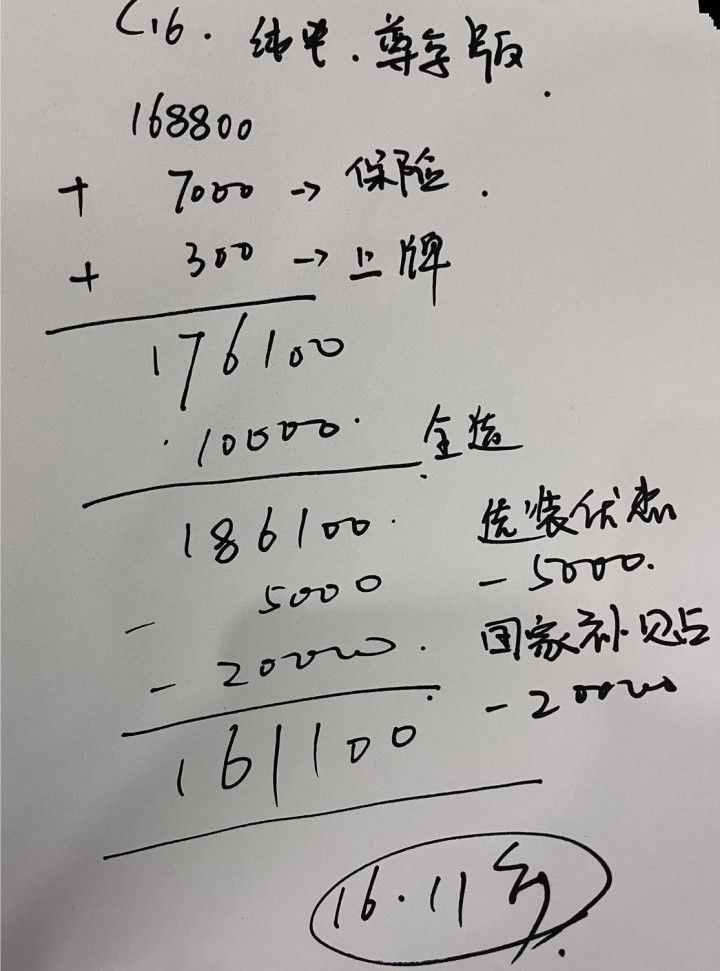 C16. 纯电.尊享版.
168800
+ 7000 → 保险.
+ 300 → 上牌
176100
10000. 全选
186100. 选装优惠
- 5000 - 5000.
- 20000. 国家补贴
161100 - 20000
16.11万.